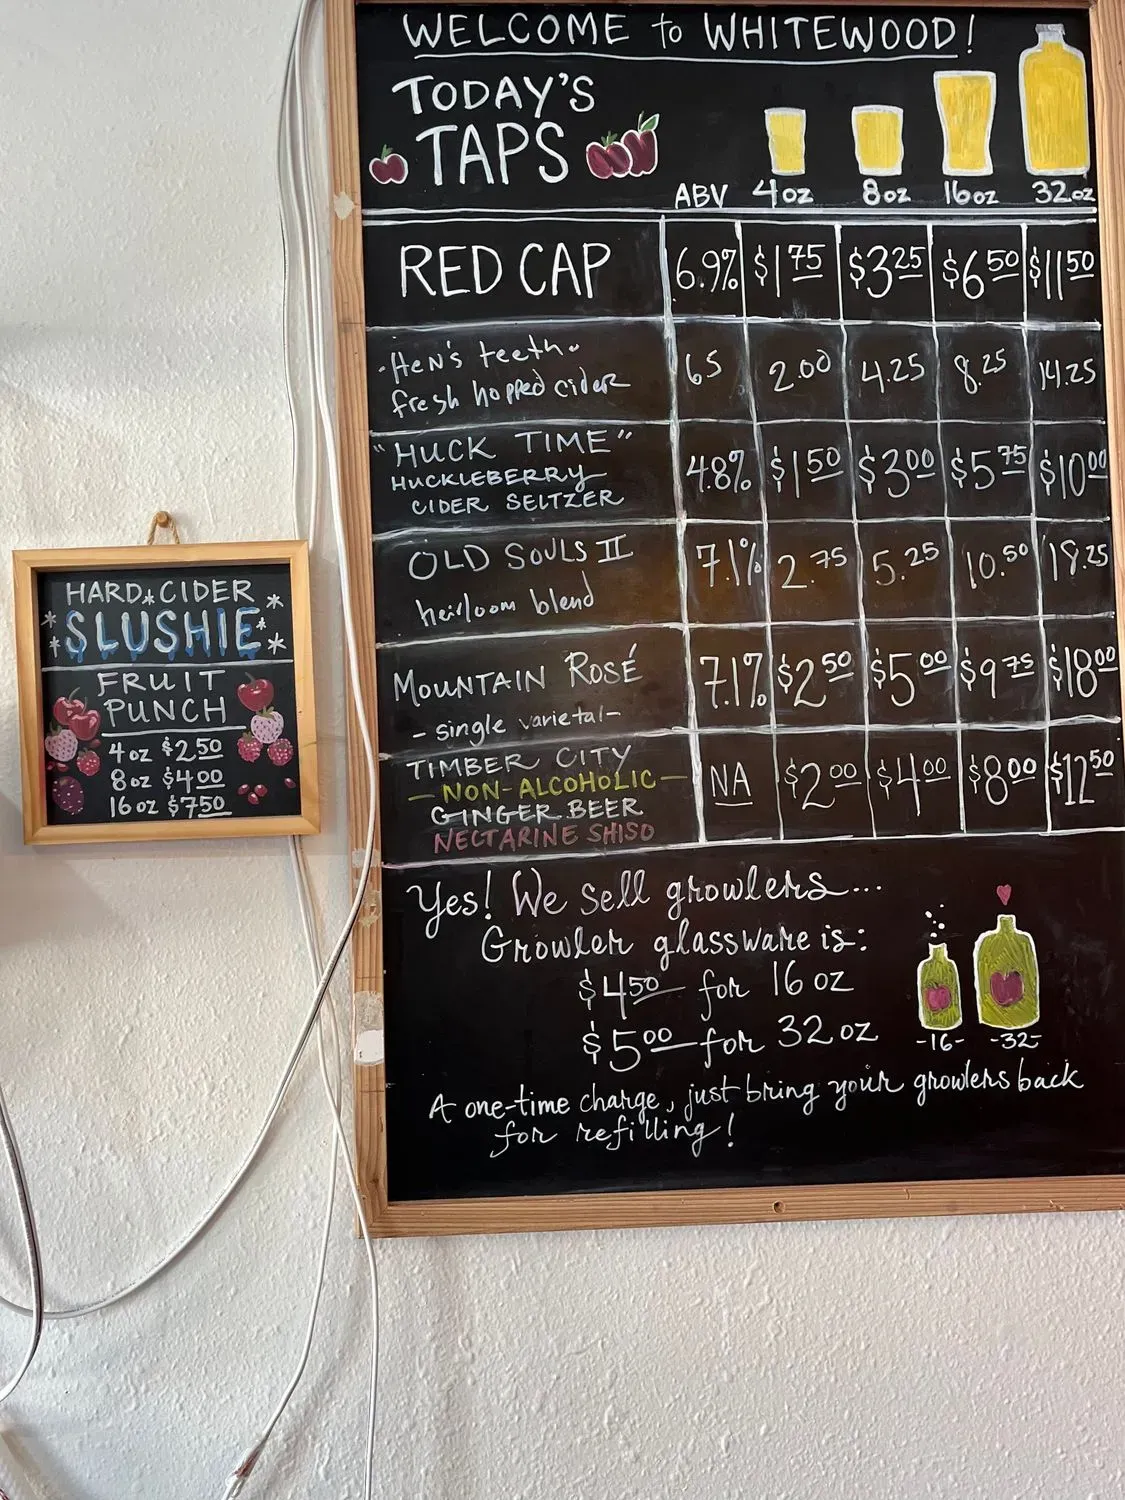 WELCOME to WHITEWOOD!
TODAY'S
TAPS
ABV 4oz 8oz 16oz 32oz
RED CAP 6.9% $1.75 $3.25 $6.50 $11.50
·Hen's teeth·
fresh hopped cider
65 2.00 4.25 8.25 14.25
"HUCK TIME"
HUCKLEBERRY
CIDER SELTZER
4.8% $1.50 $3.00 $5.75 $10.00
OLD SOULS II
heirloom blend
7.1% 2.75 5.25 10.50 18.25
MOUNTAIN ROSÉ
- single varietal -
7.1% $2.50 $5.00 $9.75 $18.00
TIMBER CITY
— NON-ALCOHOLIC —
GINGER BEER
NECTARINE SHISO
NA $2.00 $4.00 $8.00 $12.50
Yes! We sell growlers...
Growler glassware is:
$4.50 for 16 oz
$5.00 for 32 oz
-16- -32-
A one-time charge, just bring your growlers back
for refilling!
HARD CIDER
SLUSHIE
FRUIT
PUNCH
4oz $2.50
8oz $4.00
16oz $7.50